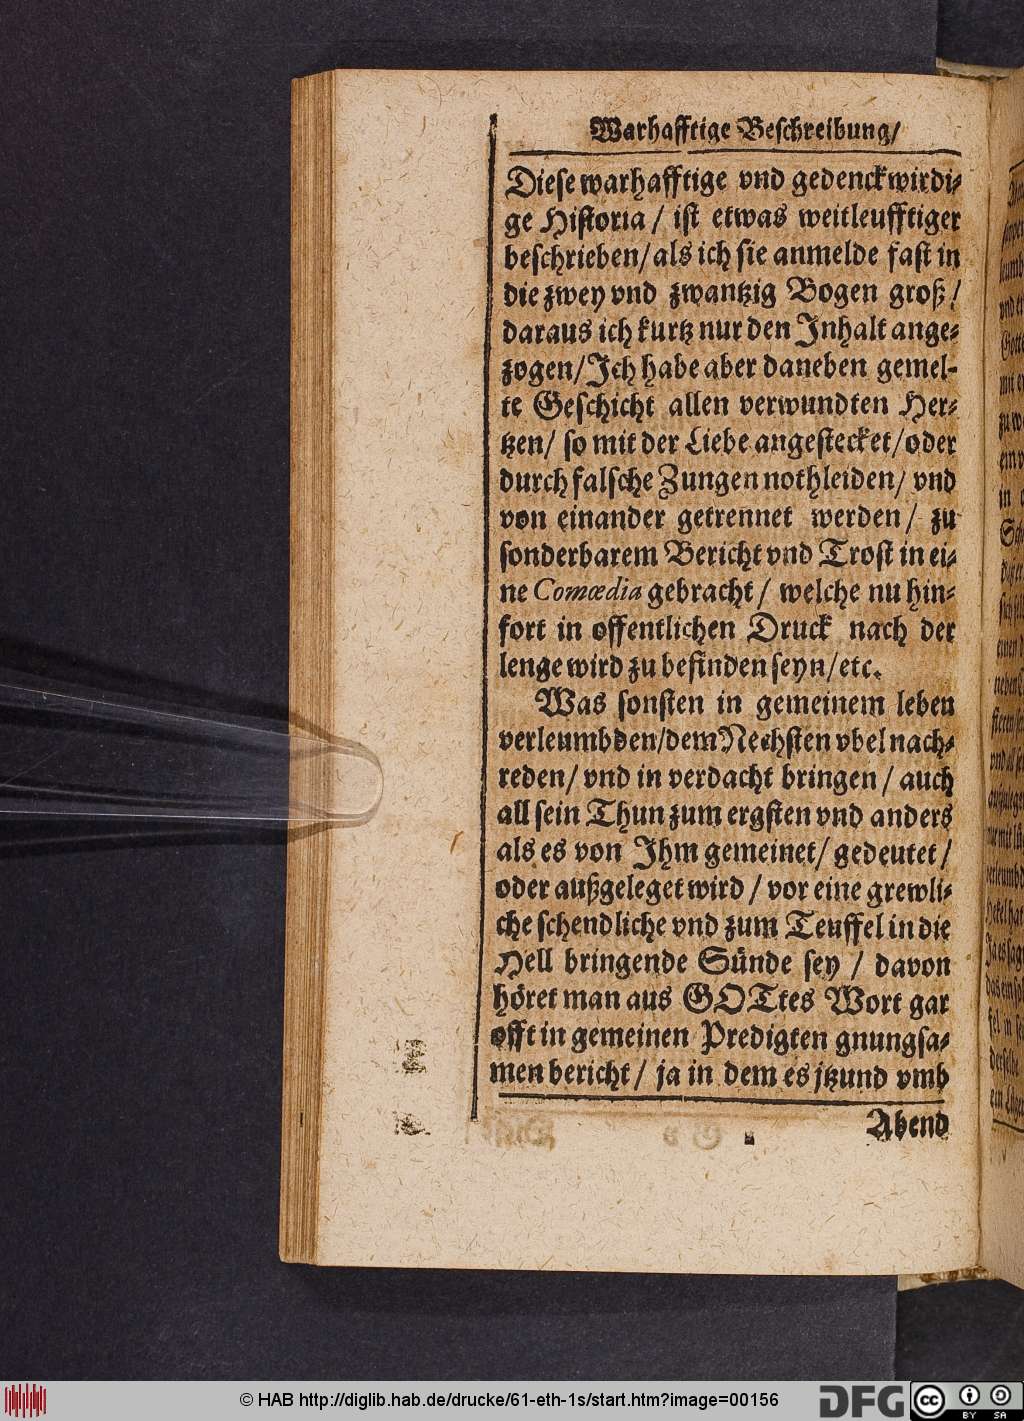 Warhafftige Beschreibung/
Diese warhafftige vnd gedenckwirdi-
ge Historia / ist etwas weitleufftiger
beschrieben/als ich sie anmelde fast in
die zwey vnd zwantzig Bogen groß/
daraus ich kurtz nur den Inhalt ange-
zogen/Ich habe aber daneben gemel-
te Geschicht allen verwundten Her-
tzen/ so mit der Liebe angestecket/oder
durch falsche Zungen nothleiden/ vnd
von einander getrennet werden/ zu
sonderbarem Bericht vnd Trost in ei-
ne Comœdia gebracht / welche nu hin-
fort in offentlichen Druck nach der
lenge wird zu befinden seyn/etc.
Was sonsten in gemeinem leben
verleumbden/dem Nechsten vbel nach-
reden/ vnd in verdacht bringen / auch
all sein Thun zum ergsten vnd anders
als es von Ihm gemeinet/ gedeutet/
oder außgeleget wird / vor eine grewli-
che schendliche vnd zum Teuffel in die
Hell bringende Sünde sey / davon
höret man aus GOTtes Wort gar
offt in gemeinen Predigten gnungsa-
men bericht/ ja in dem es jtzund vmb
Abend
© HAB http://diglib.hab.de/drucke/61-eth-1s/start.htm?image=00156
DFG
cc BY SA